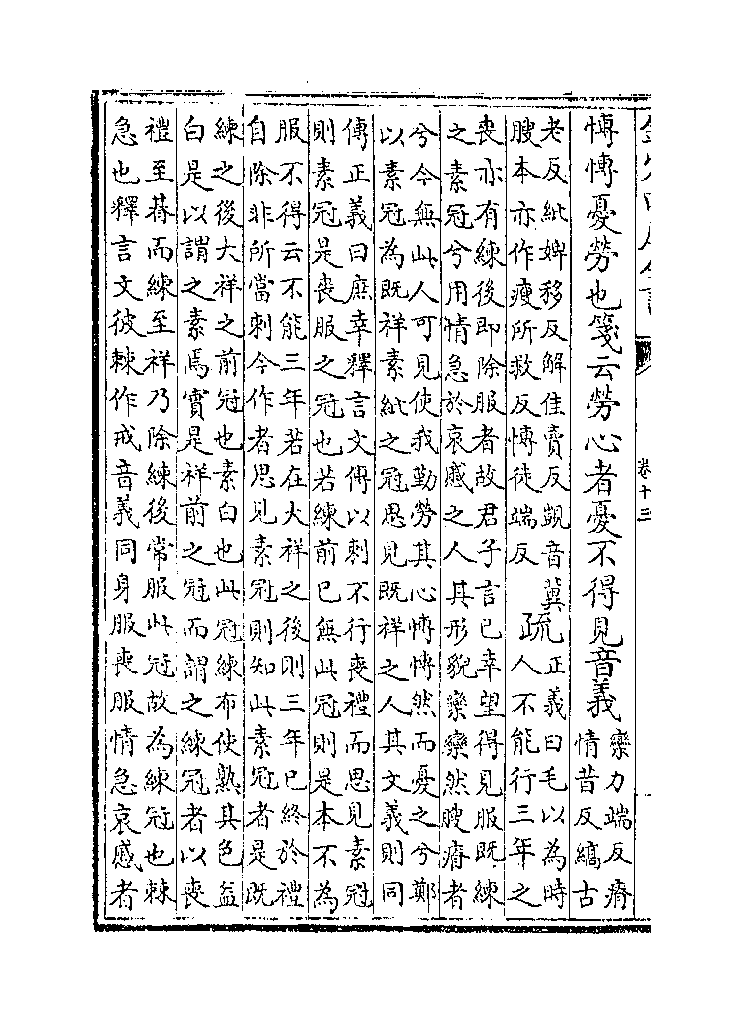 卷十三
慱慱憂勞也箋云勞心者憂不得見音義
欒力端反瘠
情昔反縞古
老反紕婢移反解佳賣反覬音冀
膄本亦作瘦所救反慱徒端反
疏
正義曰毛以為時
人不能行三年之
喪亦有練後即除服者故君子言已幸望得見服既練
之素冠兮用情急於哀慼之人其形貌欒欒然膄瘠者
兮今無此人可見使我勤勞其心慱慱然而憂之兮鄭
以素冠為既祥素紕之冠思見既祥之人其文義則同
傳正義曰庶幸釋言文傳以刺不行喪禮而思見素冠
則素冠是喪服之冠也若練前已無此冠則是本不為
服不得云不能三年若在大祥之後則三年已終於禮
自除非所當刺今作者思見素冠則知此素冠者是既
練之後大祥之前冠也素白也此冠練布使熟其色益
白是以謂之素焉實是祥前之冠而謂之練冠者以喪
禮至朞而練至祥乃除練後常服此冠故為練冠也棘
急也釋言文彼棘作戒音義同身服喪服情急哀慼者